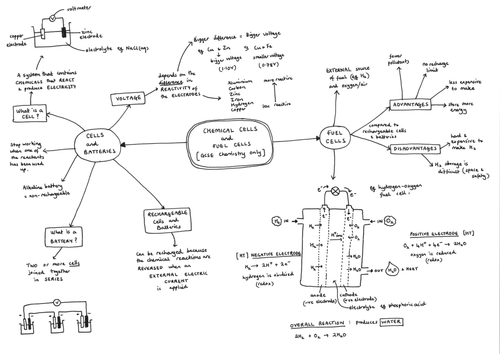 CHEMICAL CELLS
and
FUEL CELLS
[GCSE Chemistry only]
CELLS
and
BATTERIES
voltmeter
copper
electrode
zinc
electrode
electrolyte of NaCl(aq)
A system that contains
CHEMICALS that REACT
to produce ELECTRICITY
What is a
CELL?
Stop working
when one of
the reactants
has been used
up.
Alkaline battery
= non-rechargeable
What is a
BATTERY?
TWO or more cells
joined together
in SERIES
VOLTAGE
depends on the
difference in
REACTIVITY of
the ELECTRODES
Bigger difference = Bigger voltage
eg Cu & Zn
bigger voltage
(1.10V)
eg Cu & Fe
smaller voltage
(0.78V)
Aluminium
Carbon
Zinc
Iron
Hydrogen
Copper
more reactive
less reactive
RECHARGEABLE
Cells and
Batteries
Can be recharged because
the chemical reactions are
REVERSED when an
EXTERNAL ELECTRIC
CURRENT
is applied
FUEL
CELLS
EXTERNAL source
of fuel (eg H₂)
and oxygen/air
compared to
rechargeable cells
& batteries
ADVANTAGES
fewer
pollutants
no recharge
limit
less expensive to
make
store more
energy
DISADVANTAGES
hard &
expensive to
make H₂
H₂ storage is
difficult (space &
safety)
eg hydrogen-oxygen
fuel cell:
e⁻
e⁻
H₂ IN
IN O₂
OUT H₂O + HEAT
[HT] NEGATIVE ELECTRODE
H₂ → 2H⁺ + 2e⁻
hydrogen is oxidised
(redox)
POSITIVE ELECTRODE [HT]
O₂ + 4H⁺ + 4e⁻ → 2H₂O
oxygen is reduced
(redox)
anode
(-ve electrode)
cathode
(+ve electrode)
electrolyte eg phosphoric acid
OVERALL REACTION: produces WATER
2H₂ + O₂ → 2H₂O